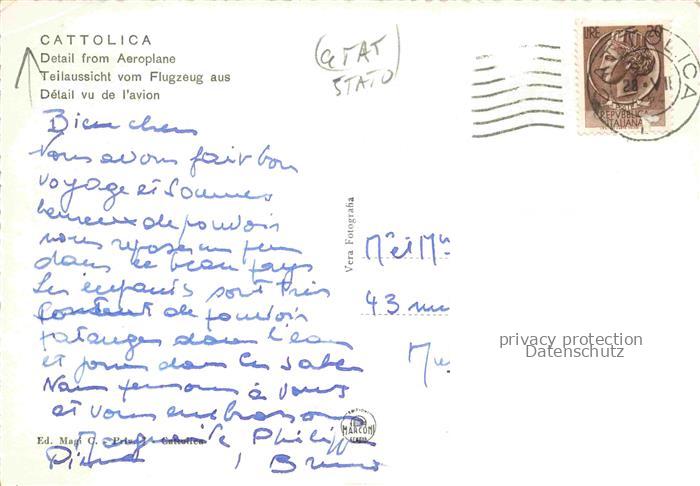 CATTOLICA
Detail from Aeroplane
Teilaussicht vom Flugzeug aus
Détail vu de l'avion
STATO
LIRE 20
REPVBBLICA
ITALIANA
Bien chers
Nous avons fait bon
voyage et sommes
heureux de pouvoir
nous reposer un peu
dans ce beau pays
Les enfants sont très
content de pouvoir
patauger dans l'eau
et jouer dans le sable
Nous pensons à vous
et vous embrassons
Philipp
Bruno
Ed. Magi C. - Cattolica
Vera Fotografia
MARCONI
Mr et Mm
43 rue
Mu
privacy protection
Datenschutz